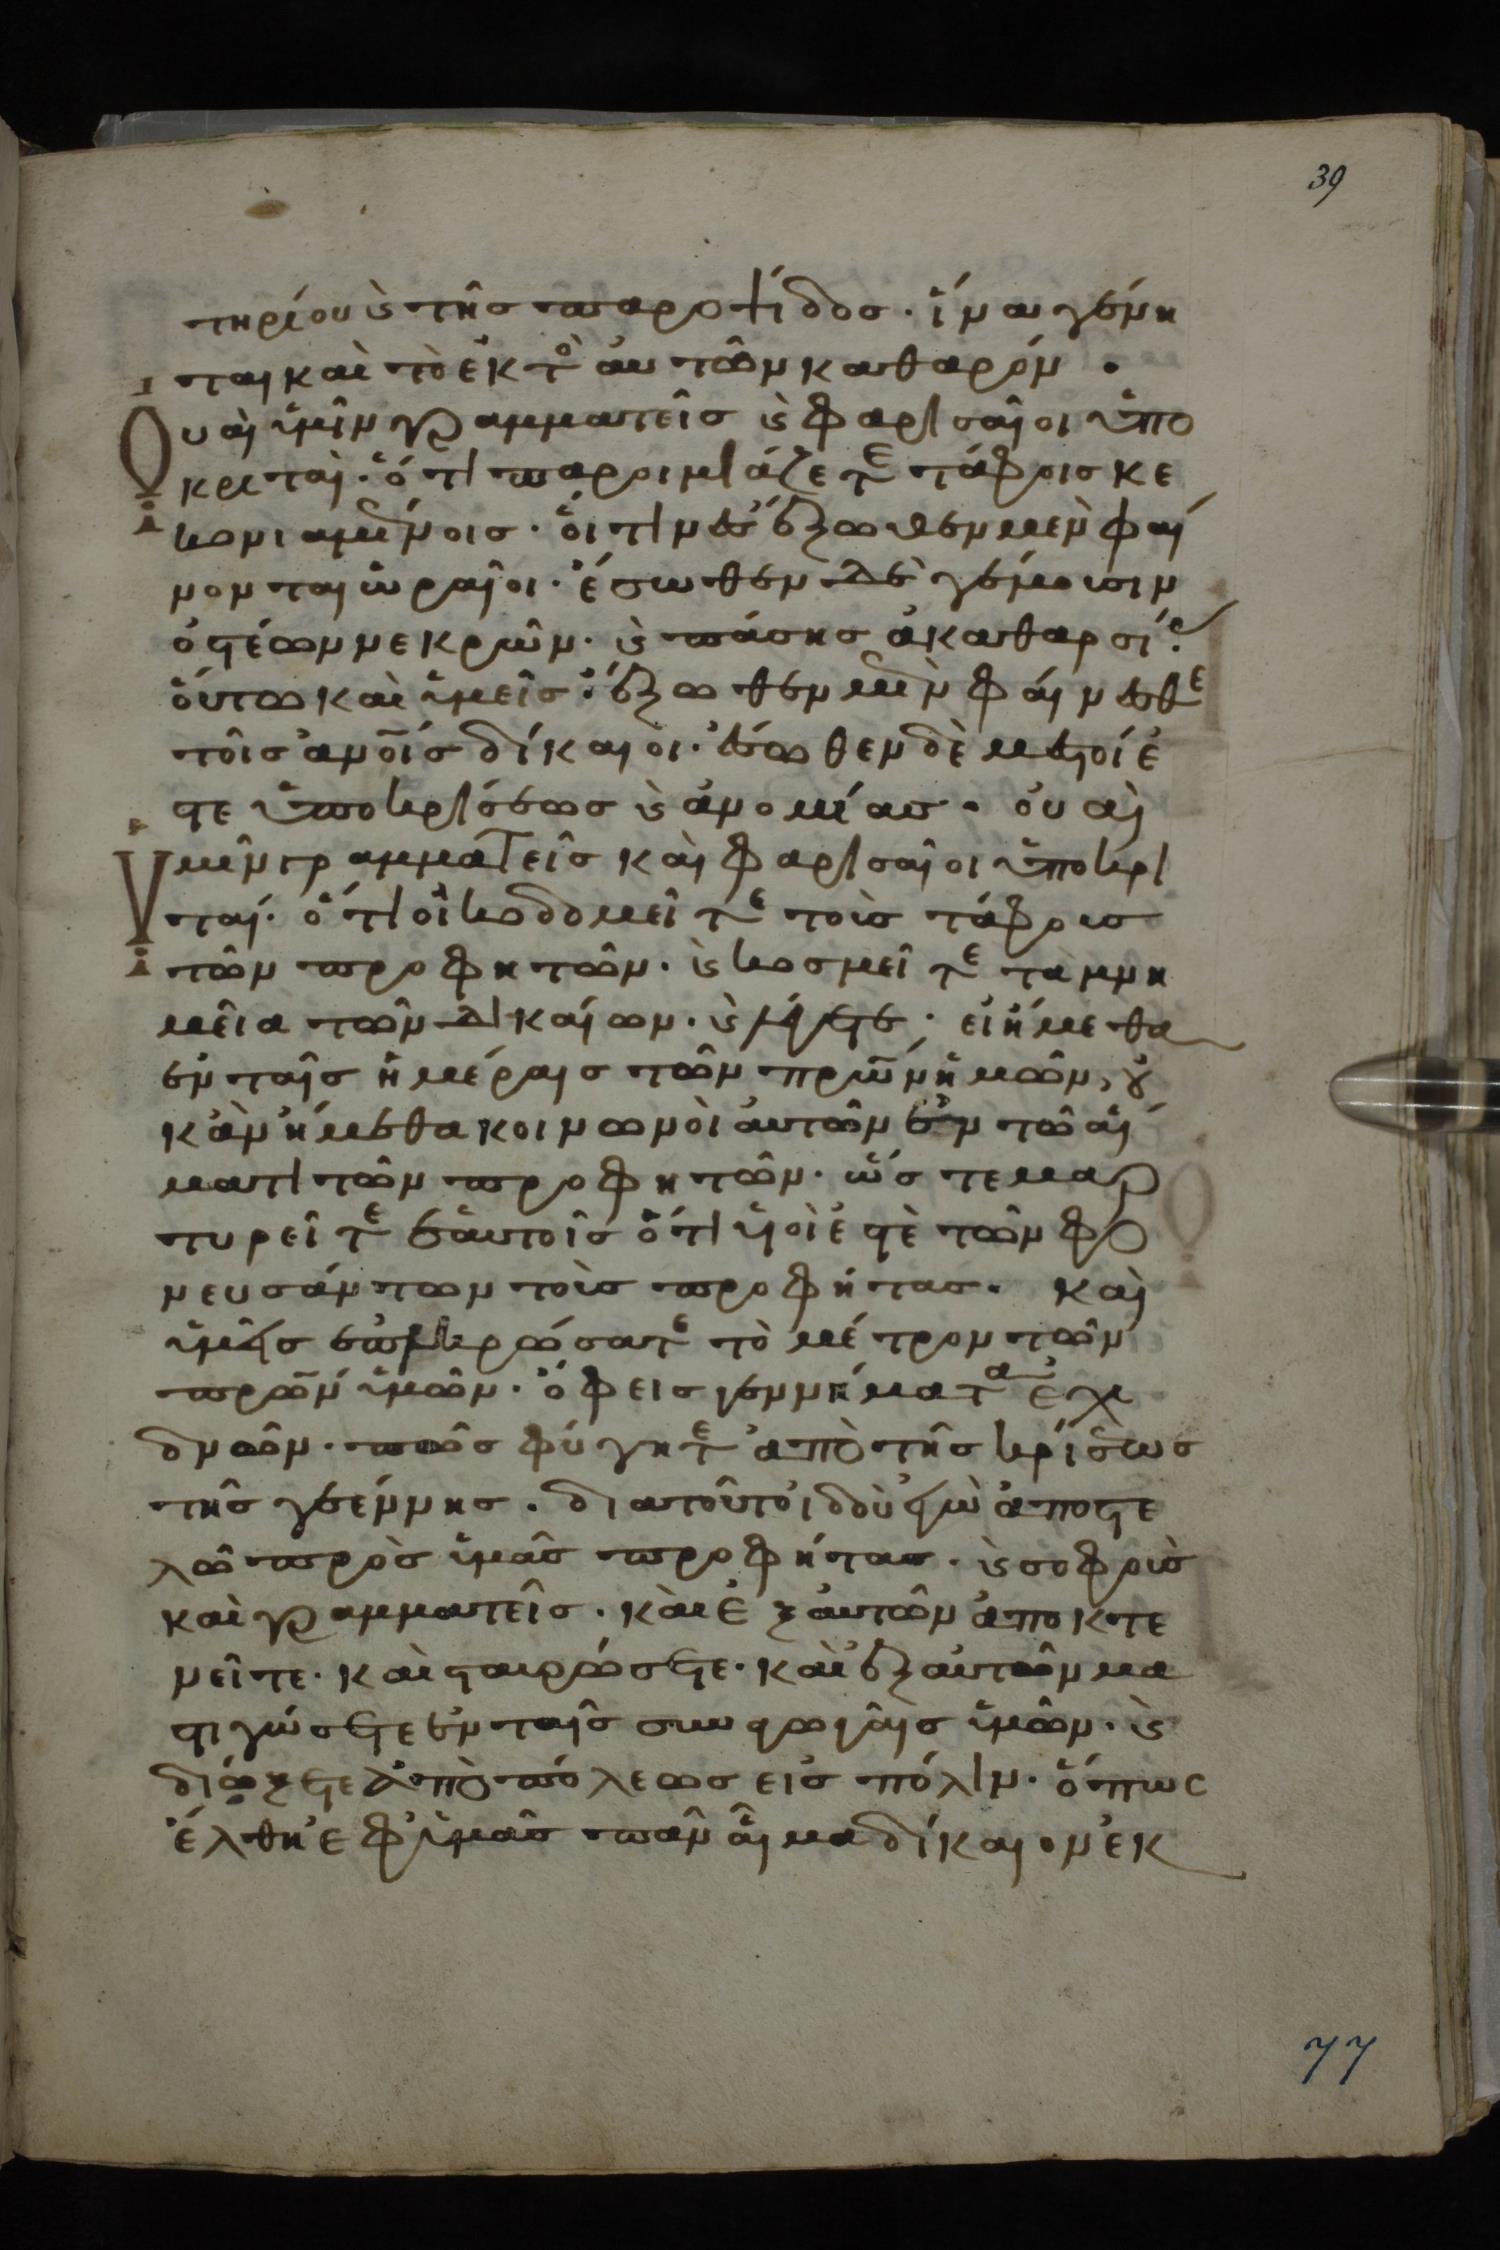 39
τηρίου (καὶ) τῆς παροψίδος· ἵνα γένη
ται καὶ τὸ ἐκτὸ(ς) αὐτῶν καθαρόν·
Οὐαὶ ὑμῖν γραμματεῖς (καὶ) φαρισαῖοι ὑπο
κριταί· ὅτι παροιμιάζετε τάφοις κε
κονιαμένοις· οἵτινες ἔξωθεν μὲν φαί
νονται ὡραῖοι· ἔσωθεν δὲ γέμουσιν
ὀστέων νεκρῶν· (καὶ) πάσης ἀκαθαρσί(ας)
οὕτω καὶ ὑμεῖς· ἔξωθεν μὲν φαίνεσθε
τοῖς ἀνο͞ις δίκαιοι· ἔσωθεν δὲ μεστοί ἐ
στε ὑποκρίσεως (καὶ) ἀνομίας· οὐαὶ
Ὑμῖν γραμματεῖς καὶ φαρισαῖοι ὑποκρι
ταί· ὅτι οἰκοδομεῖτε τοὺς τάφους
τῶν προφητῶν· (καὶ) κοσμεῖτε τὰ μνη
μεῖα τῶν δικαίων· (καὶ) λέγετε· εἰ ἤμεθα
ἐν ταῖς ἡμέραις τῶν πρω͞ν ἡμῶν, οὐ
κ ἂν ἤμεθα κοινωνοὶ αὐτῶν ἐν τῶ αἵ
ματι τῶν προφητῶν· ὥστε μαρ
τυρεῖτε ἑαυτοῖς ὅτι υἱοί ἐστε τῶν φο
νευσάντων τοὺς προφήτας· καὶ
ὑμεῖς ἐπληρώσατε τὸ μέτρον τῶν
πρω͞ν ὑμῶν· ὄφεις γεννήματα ἐχι
δνῶν· πῶς φύγητε ἀπὸ τῆς κρίσεως
τῆς γεέννης· διατοῦτο ἰδοὺ ἐγὼ ἀποστε
λῶ πρὸς ὑμᾶς προφήτας· (καὶ) σοφοὺς
καὶ γραμματεῖς· καὶ ἐξ αὐτῶν ἀποκτε
νεῖτε· καὶ σταυρώσετε· καὶ ἐξ αὐτῶν μα
στιγώσετε ἐν ταῖς συναγωγαῖς ὑμῶν· (καὶ)
διώξετε ἀπὸ πόλεως εἰς πόλιν· ὅπως
ἔλθη ἐφ' ὑμᾶς πᾶν αἷμα δίκαιον ἐκ
77